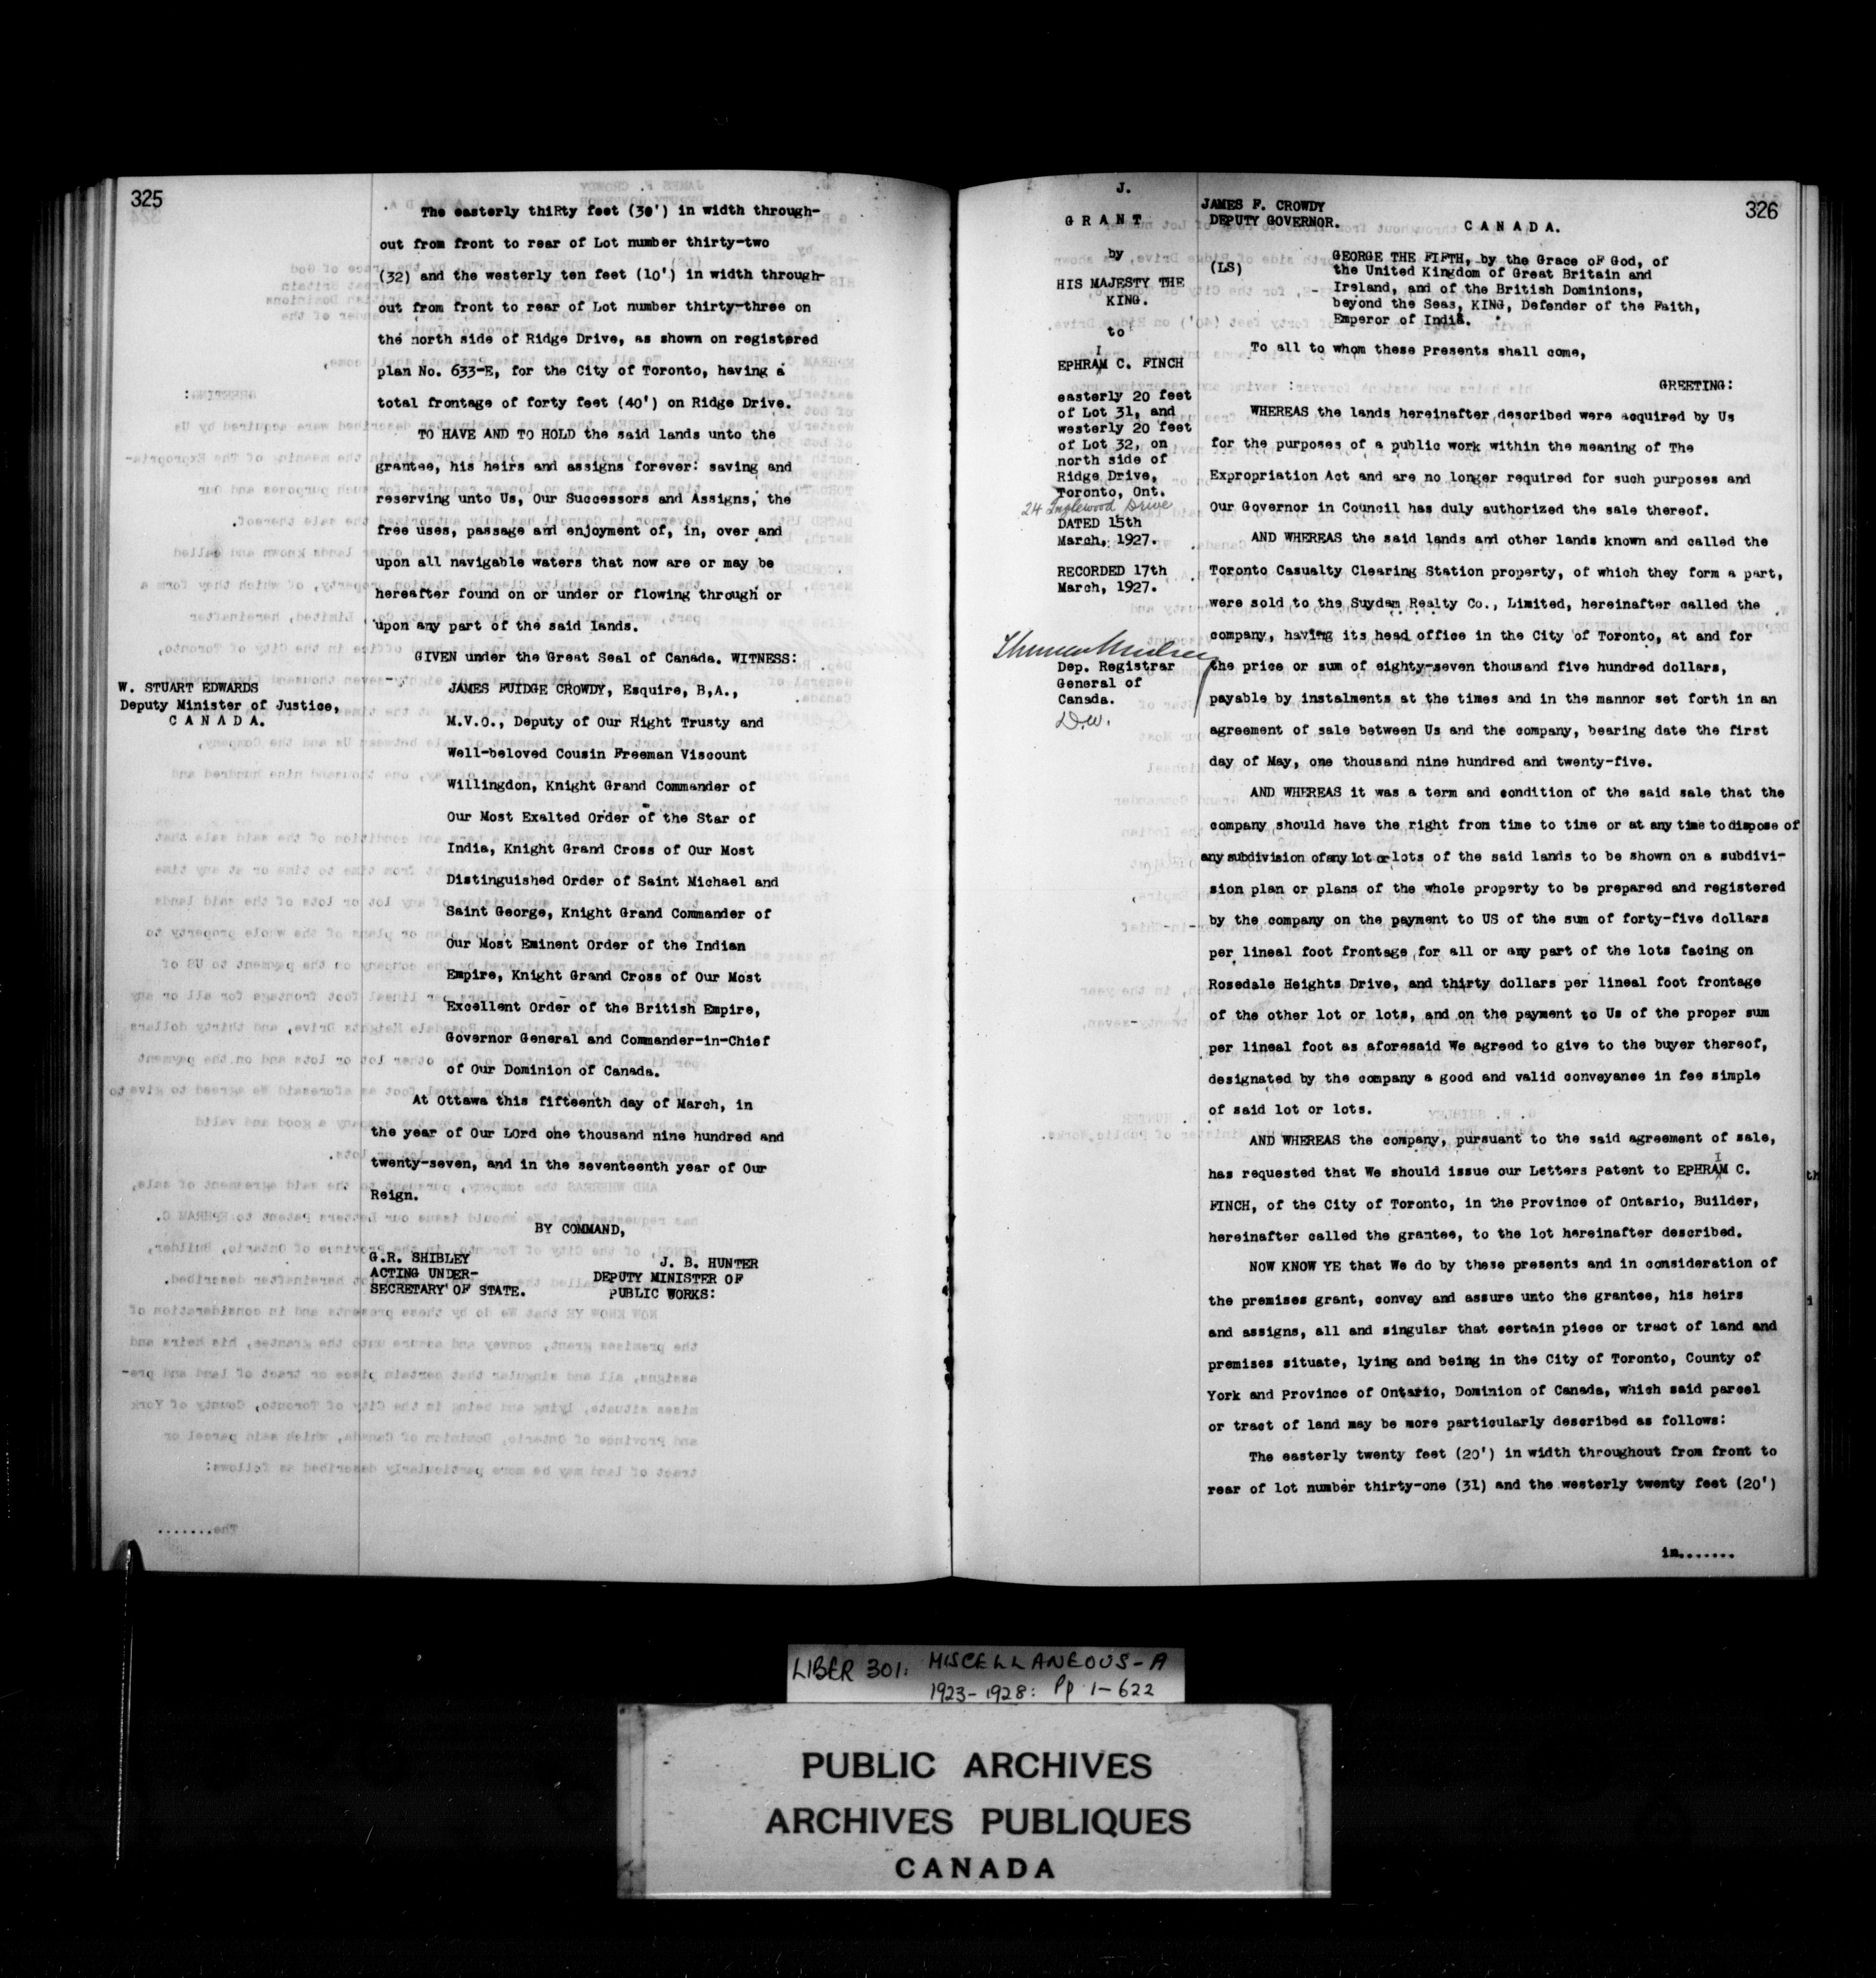 325
The easterly thiRty feet (30') in width through-
out from front to rear of Lot number thirty-two
(32) and the westerly ten feet (10') in width through-
out from front to rear of Lot number thirty-three on
the north side of Ridge Drive, as shown on registered
plan No. 633-E, for the City of Toronto, having a
total frontage of forty feet (40') on Ridge Drive.
TO HAVE AND TO HOLD the said lands unto the
grantee, his heirs and assigns forever: saving and
reserving unto Us, Our Successors and Assigns, the
free uses, passage and enjoyment of, in, over and
upon all navigable waters that now are or may be
hereafter found on or under or flowing through or
upon any part of the said lands.
GIVEN under the Great Seal of Canada. WITNESS:
W. STUART EDWARDS
Deputy Minister of Justice,
C A N A D A.
JAMES FUIDGE CROWDY, Esquire, B,A.,
M.V.O., Deputy of Our Right Trusty and
Well-beloved Cousin Freeman Viscount
Willingdon, Knight Grand Commander of
Our Most Exalted Order of the Star of
India, Knight Grand Cross of Our Most
Distinguished Order of Saint Michael and
Saint George, Knight Grand Commander of
Our Most Eminent Order of the Indian
Empire, Knight Grand Cross of Our Most
Excellent Order of the British Empire,
Governor General and Commander-in-Chief
of Our Dominion of Canada.
At Ottawa this fifteenth day of March, in
the year of Our LOrd one thousand nine hundred and
twenty-seven, and in the seventeenth year of Our
Reign.
BY COMMAND,
G.R. SHIBLEY
ACTING UNDER-
SECRETARY OF STATE.
J. B. HUNTER
DEPUTY MINISTER OF
PUBLIC WORKS:
326
J.
G R A N T
by
HIS MAJESTY THE
KING.
to
I
EPHRAM C. FINCH
easterly 20 feet
of Lot 31, and
westerly 20 feet
of Lot 32, on
north side of
Ridge Drive,
Toronto, Ont.
24 Inglewood Drive
DATED 15th
March, 1927.
RECORDED 17th
March, 1927.
Dep. Registrar
General of
Canada.
D.W.
JAMES F. CROWDY
DEPUTY GOVERNOR.
C A N A D A.
(LS)
GEORGE THE FIFTH, by the Grace oF God, of
the United Kingdom of Great Britain and
Ireland, and of the British Dominions,
beyond the Seas, KING, Defender of the Faith,
Emperor of India.
To all to whom these Presents shall come,
GREETING:
WHEREAS the lands hereinafter described were acquired by Us
for the purposes of a public work within the meaning of The
Expropriation Act and are no longer required for such purposes and
Our Governor in Council has duly authorized the sale thereof.
AND WHEREAS the said lands and other lands known and called the
Toronto Casualty Clearing Station property, of which they form a part,
were sold to the Suydam Realty Co., Limited, hereinafter called the
company, having its head office in the City of Toronto, at and for
the price or sum of eighty-seven thousand five hundred dollars,
payable by instalments at the times and in the mannor set forth in an
agreement of sale between Us and the company, bearing date the first
day of May, one thousand nine hundred and twenty-five.
AND WHEREAS it was a term and condition of the said sale that the
company should have the right from time to time or at any time to dispose of
any subdivision of any lot or lots of the said lands to be shown on a subdivi-
sion plan or plans of the whole property to be prepared and registered
by the company on the payment to US of the sum of forty-five dollars
per lineal foot frontage for all or any part of the lots facing on
Rosedale Heights Drive, and thirty dollars per lineal foot frontage
of the other lot or lots, and on the payment to Us of the proper sum
per lineal foot as aforesaid We agreed to give to the buyer thereof,
designated by the company a good and valid conveyance in fee simple
of said lot or lots.
AND WHEREAS the company, pursuant to the said agreement of sale,
I
has requested that We should issue our Letters Patent to EPHRAM C.
FINCH, of the City of Toronto, in the Province of Ontario, Builder,
hereinafter called the grantee, to the lot hereinafter described.
NOW KNOW YE that We do by these presents and in consideration of
the premises grant, convey and assure unto the grantee, his heirs
and assigns, all and singular that certain piece or tract of land and
premises situate, lying and being in the City of Toronto, County of
York and Province of Ontario, Dominion of Canada, which said parcel
or tract of land may be more particularly described as follows:
The easterly twenty feet (20') in width throughout from front to
rear of lot number thirty-one (31) and the westerly twenty feet (20')
in.......
LIBER 301: MISCELLANEOUS-A
1923-1928: Pp 1-622
PUBLIC ARCHIVES
ARCHIVES PUBLIQUES
CANADA